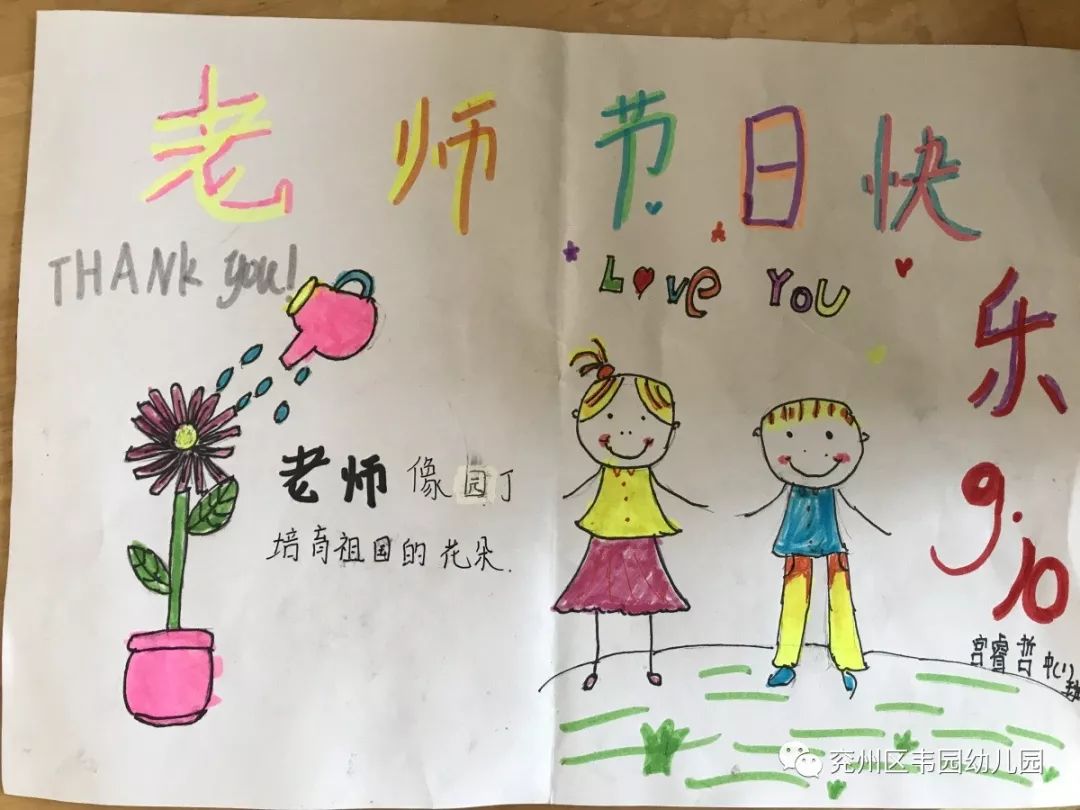 老师节日快
乐
THANK you!
Love You
老师像园丁
培育祖国的花朵.
9.10
宫睿哲
兖州区韦园幼儿园